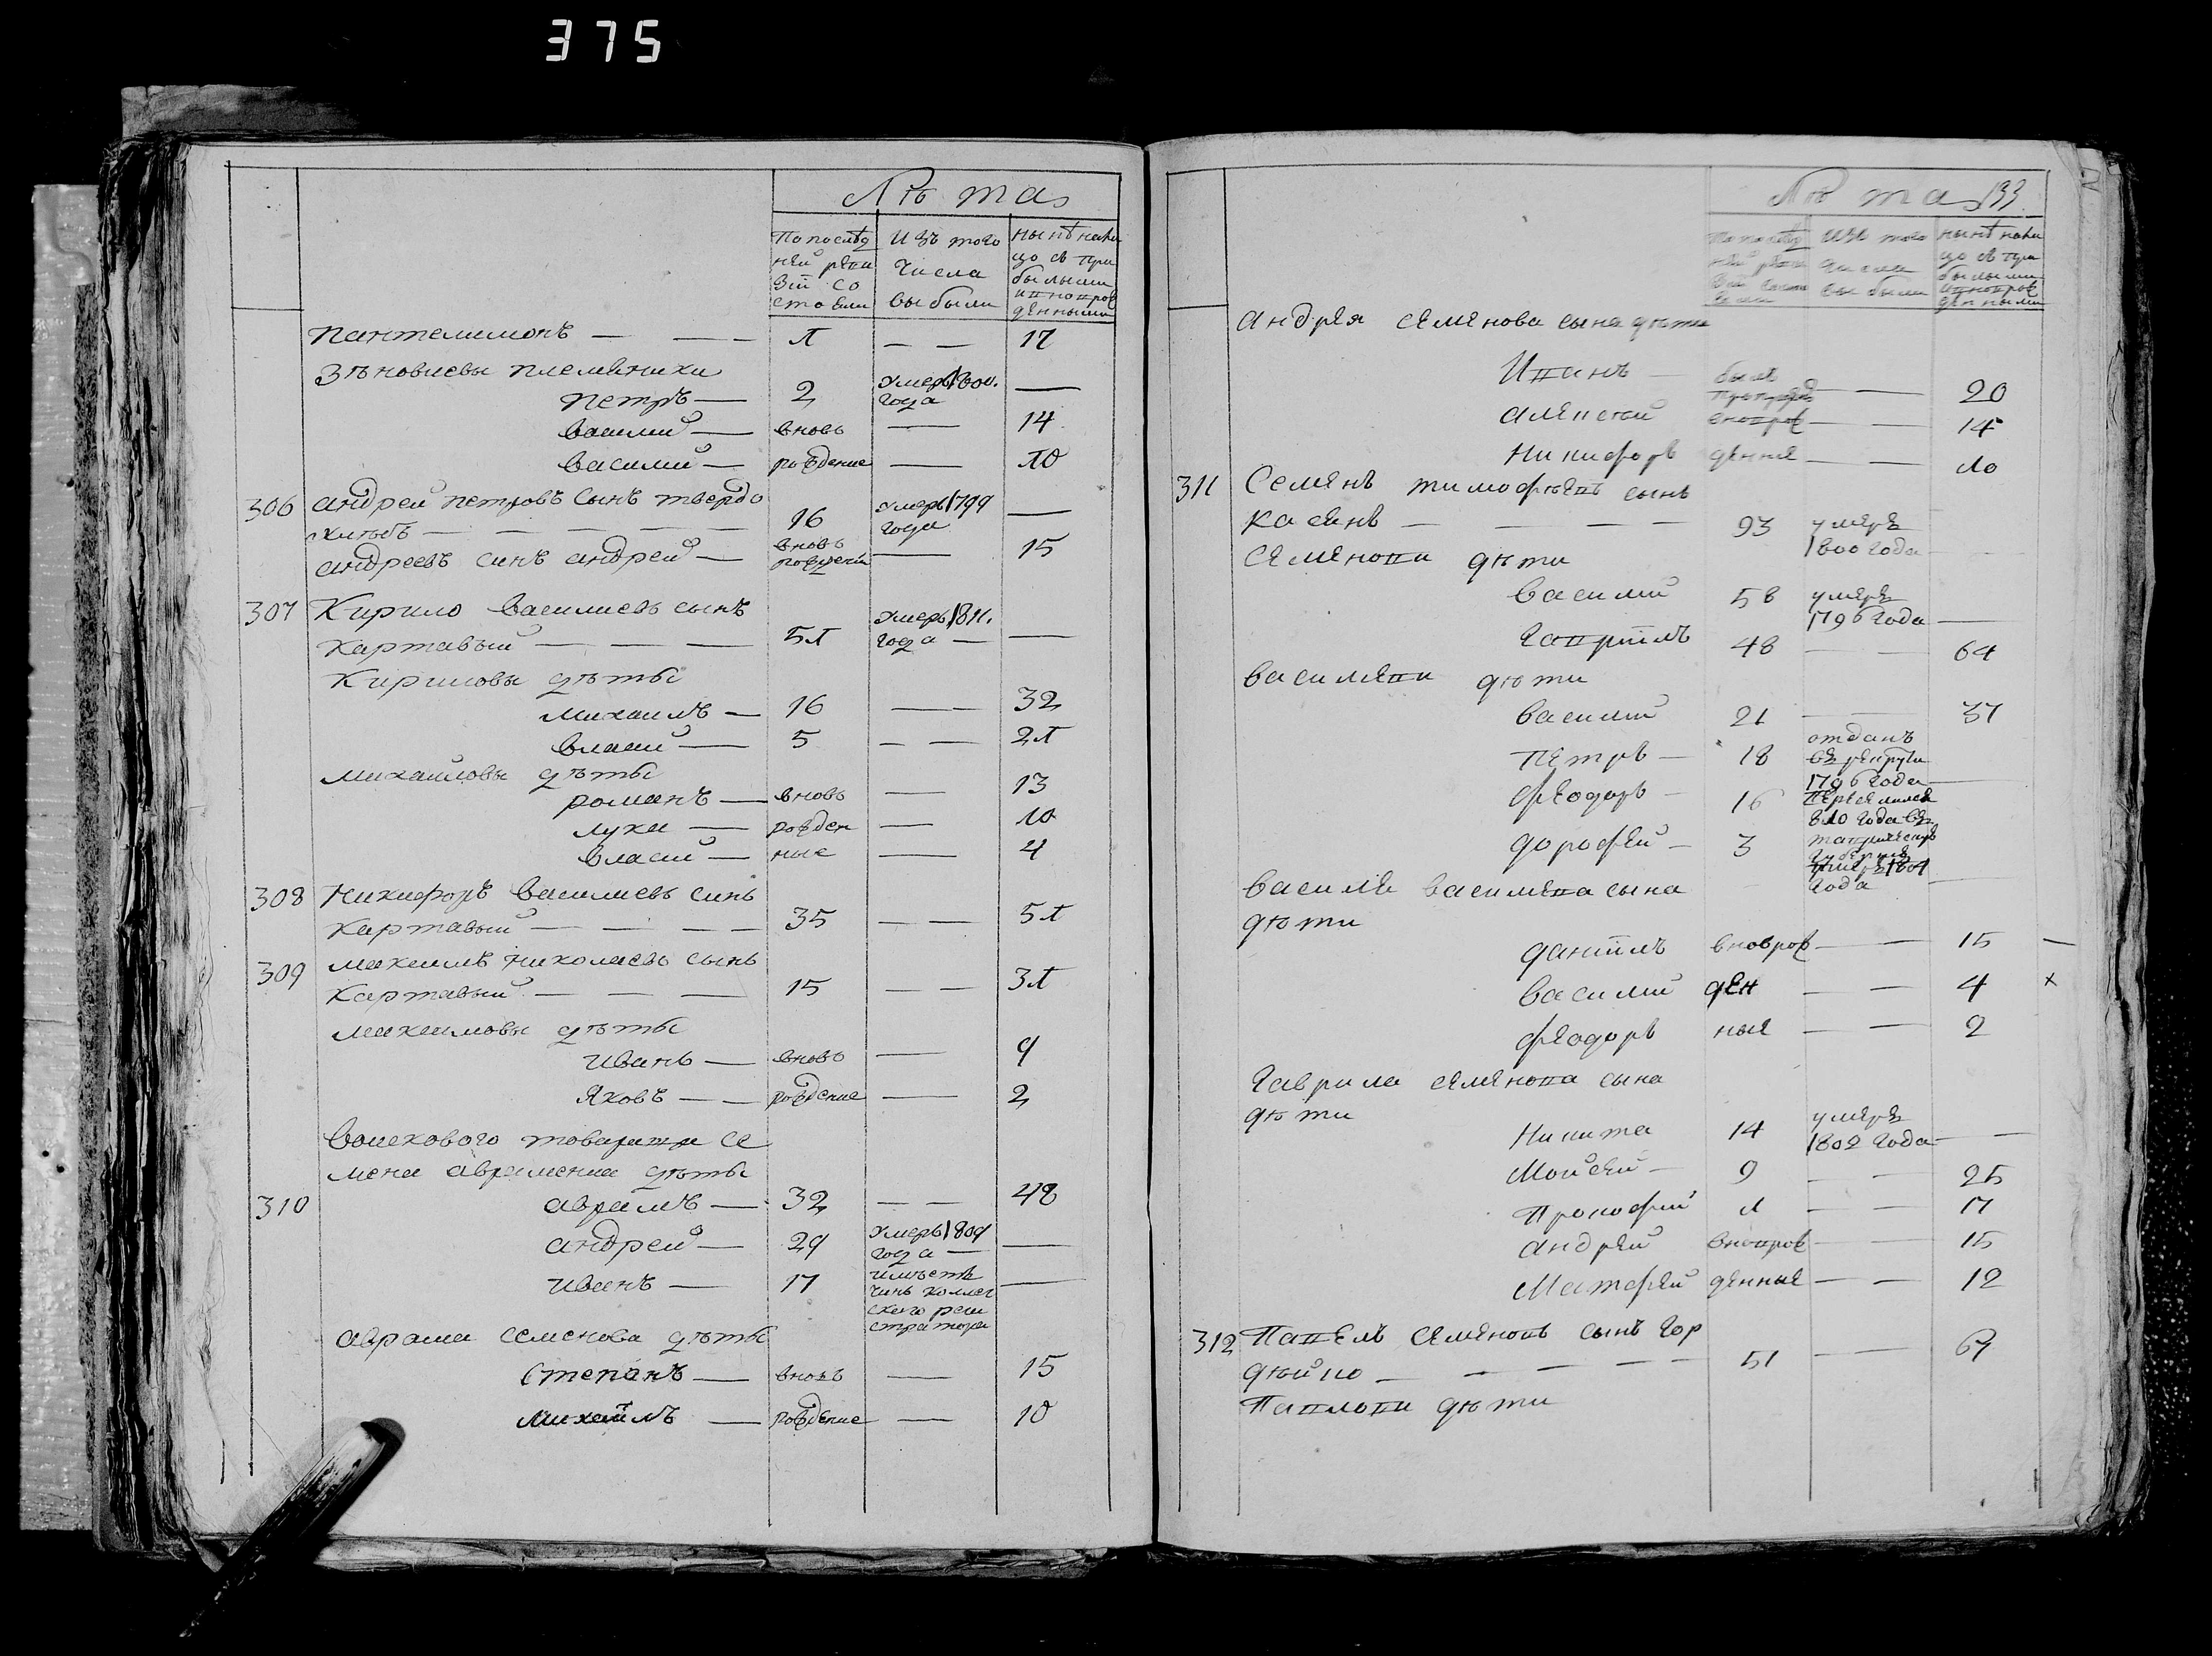 375
Лѣта
По послѣд изъ того нынѣ нали
ней реви числа цо съ при
зіи со выбыли былыми
стояли и новорож
денными
Пантелимонъ — — — 1 — — 17
Зѣновиевы племѣники
Петръ — 2 умеръ 1800. года —
василий — вновь — 14
василий — рождение — 10
306 андрей петровъ сынъ твердо
хлѣбъ — — — — 16 умеръ 1799 года —
андреевъ синъ андрей — вновь рожденій — 15
307 Кирило василиевъ сынъ
картавый — — — 51 умеръ 1811. года — —
Кириловы дѣты
михаилъ — 16 — 32
власий — 5 — — 21
михайловы дѣты
романъ — вновь — 13
лука — рожден — 10
власий — ные — 4
308 Никифоръ василиевъ синъ
картавый — — — — 35 — — 51
309 михаилъ николаевъ сынъ
картавый — — — 15 — — 31
михаиловы дѣты
иванъ — вновь — 9
Яковъ — — рождение — 2
воискового товариша се
мена авраменка дѣты
310 аврамъ — 32 — — 48
андрей — 29 умеръ 1809 года — —
иванъ — 17 имѣетъ —
чинъ коллег
ского реги
стратора
аврама семенова дѣты
Степанъ — вновь — 15
михаилъ — рождение — 10
Лѣта 133
По послед изъ того нынѣ нали
ней реви числа цо съ при
выбыли былыми
и новорож
денными
андрея семенова сына дѣти
Иванъ — былъ — 20
алексѣй вновро — — 15
Никифоръ денние — — 10
311 Семенъ тимофѣевъ сынъ
касянъ — — — — 93 умеръ
1800 года — —
Семенови дѣти
василий 58 умеръ
1796 года —
Гаврiилъ 48 — — 64
василеви дѣти
василий 21 — 37
Петръ — 18 отданъ
въ рекруты
1796 года —
феодоръ — 16 переселился
810 года въ
таврическую
губернию
дорофей — 3 умеръ 1801
года —
василя василева сына
дѣти
данiилъ вновро — — 15 —
василий ден — — 4 x
феодоръ ные — — 2
Гаврила семенова сына
дѣти
Никита 14 умеръ
1802 года — —
Мойсей — 9 — — 25
Прокофий 1 — — 17
андрей вновро — — 15
Матфей денные — — 12
312 Павелъ Семеновъ сынъ гор
дѣйко — — — — 51 — — 67
Павлови дѣти